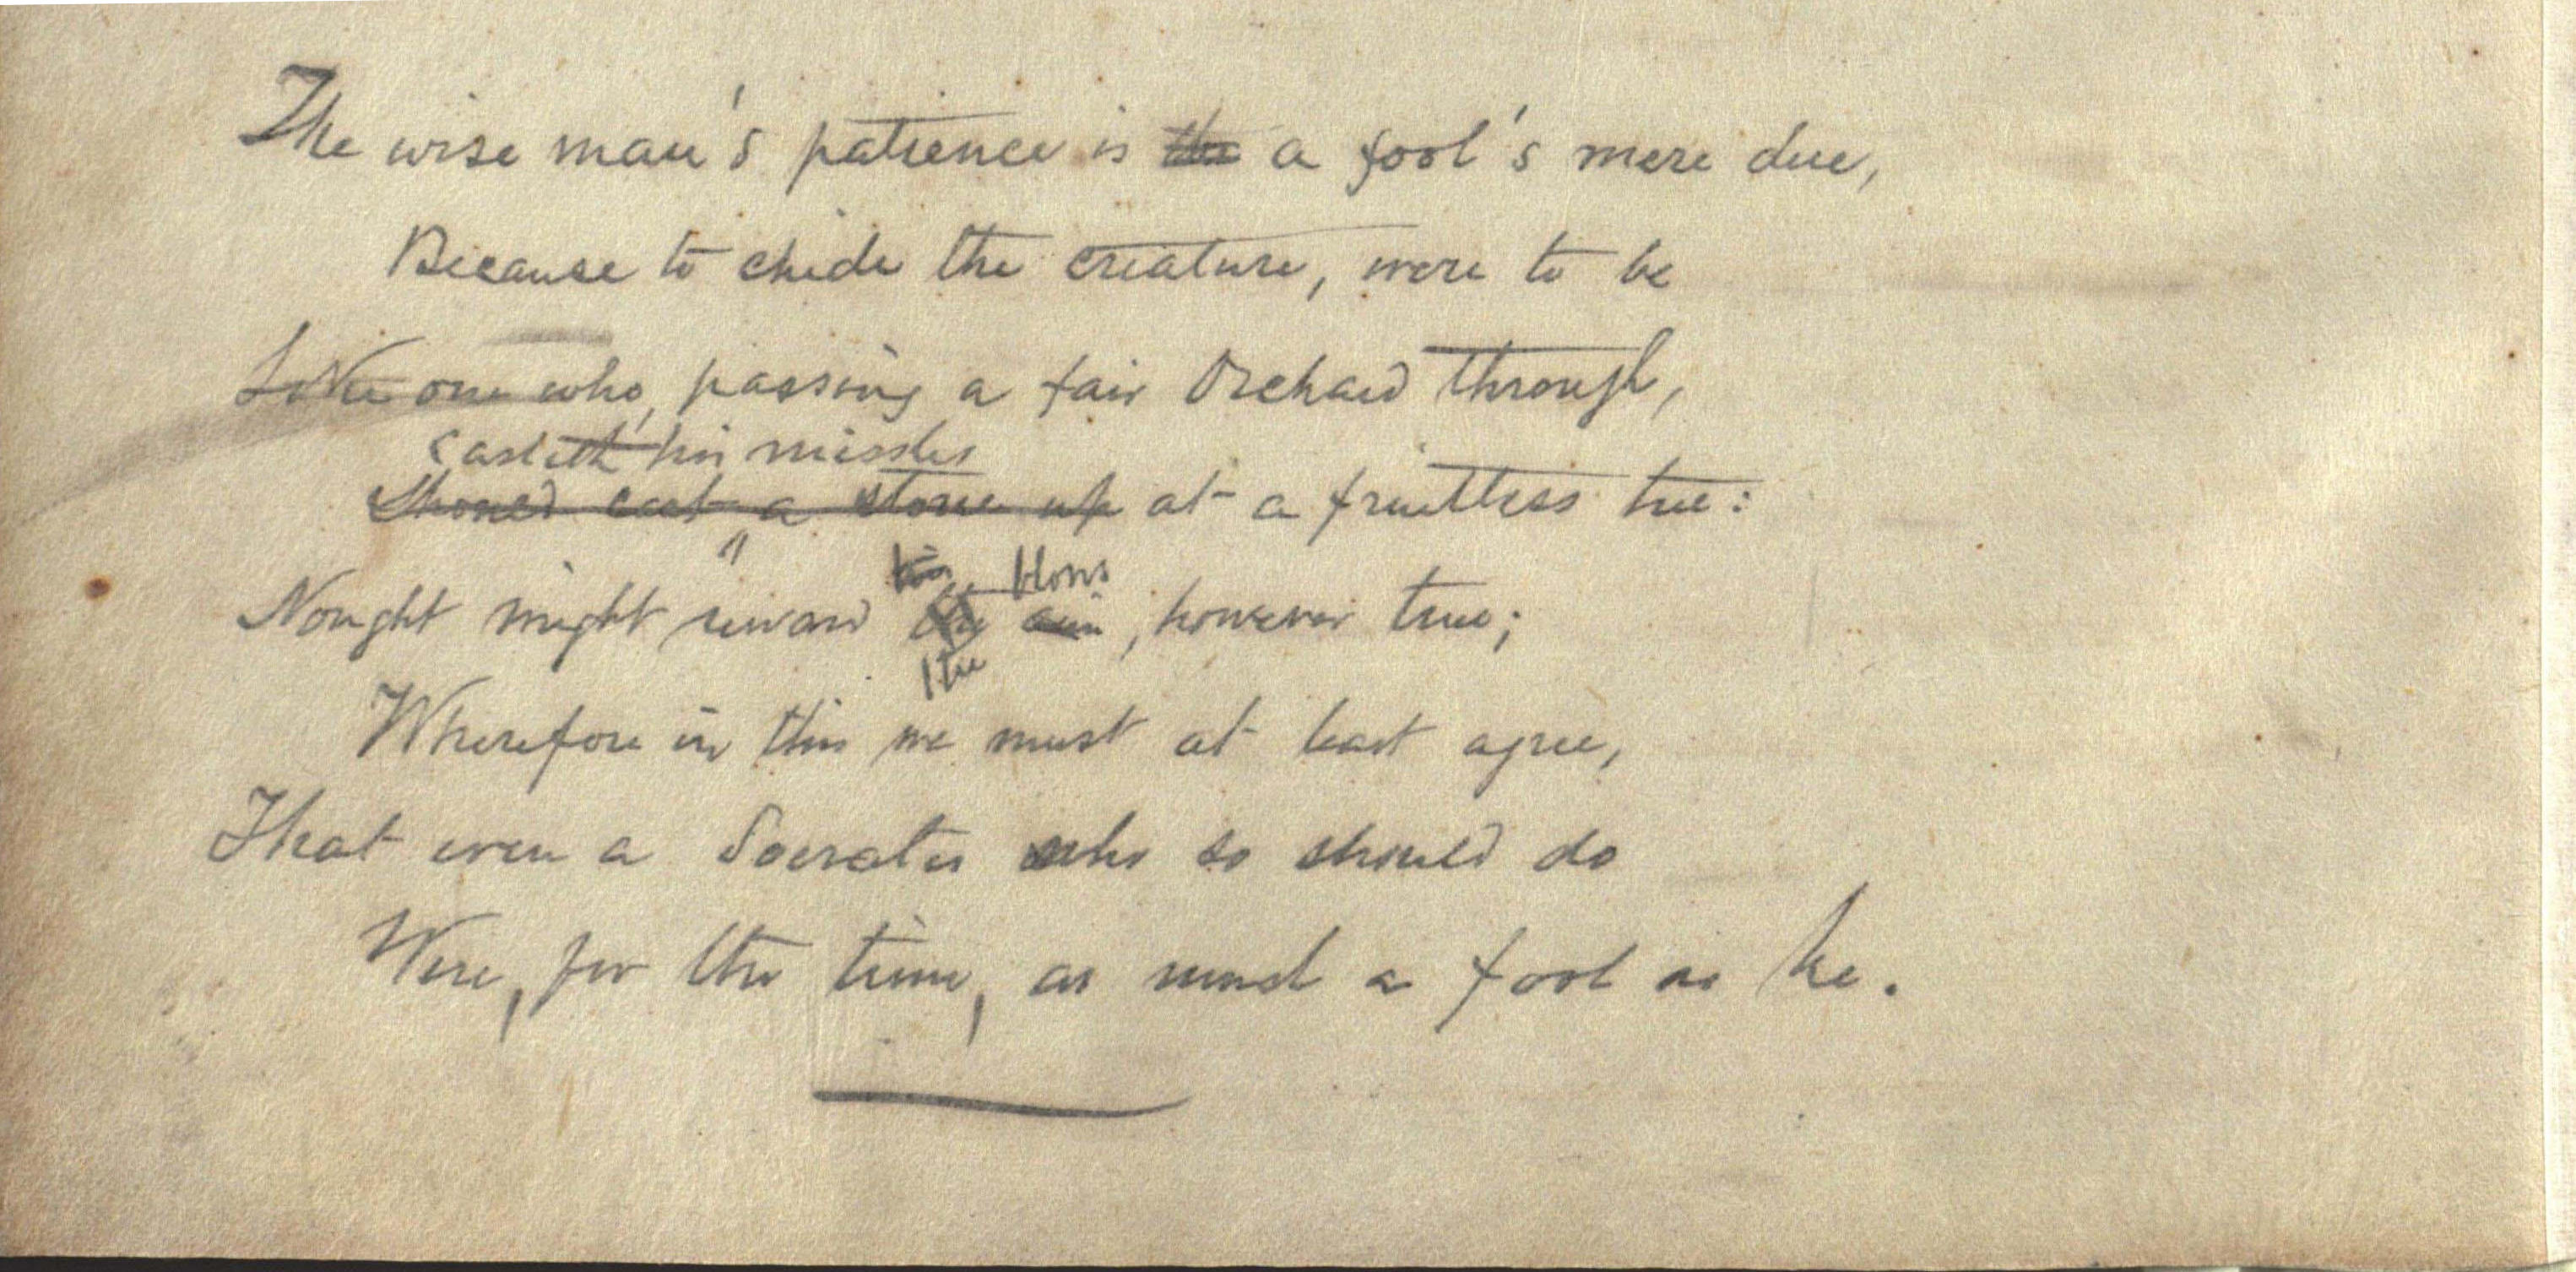 The wise man's patience is the a fool's mere due,
Because to chide the creature, were to be
Like one who, passing a fair Orchard through,
casteth his missiles
Should cast a stone up at a fruitless tree:
his blows
Nought might reward the aim, however true;
the
Wherefore in this we must at least agree,
That even a Socrates who so should do
Were, for the time, as much a fool as he.